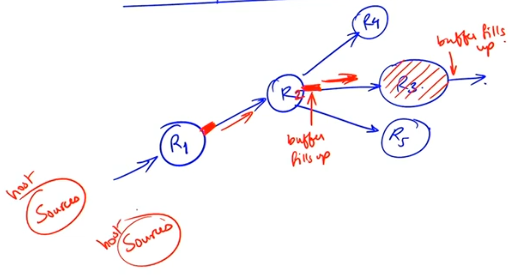 R4
buffer fills
up
R2
R3
buffer
fills up
R1
R5
host
Sources
host
Sources